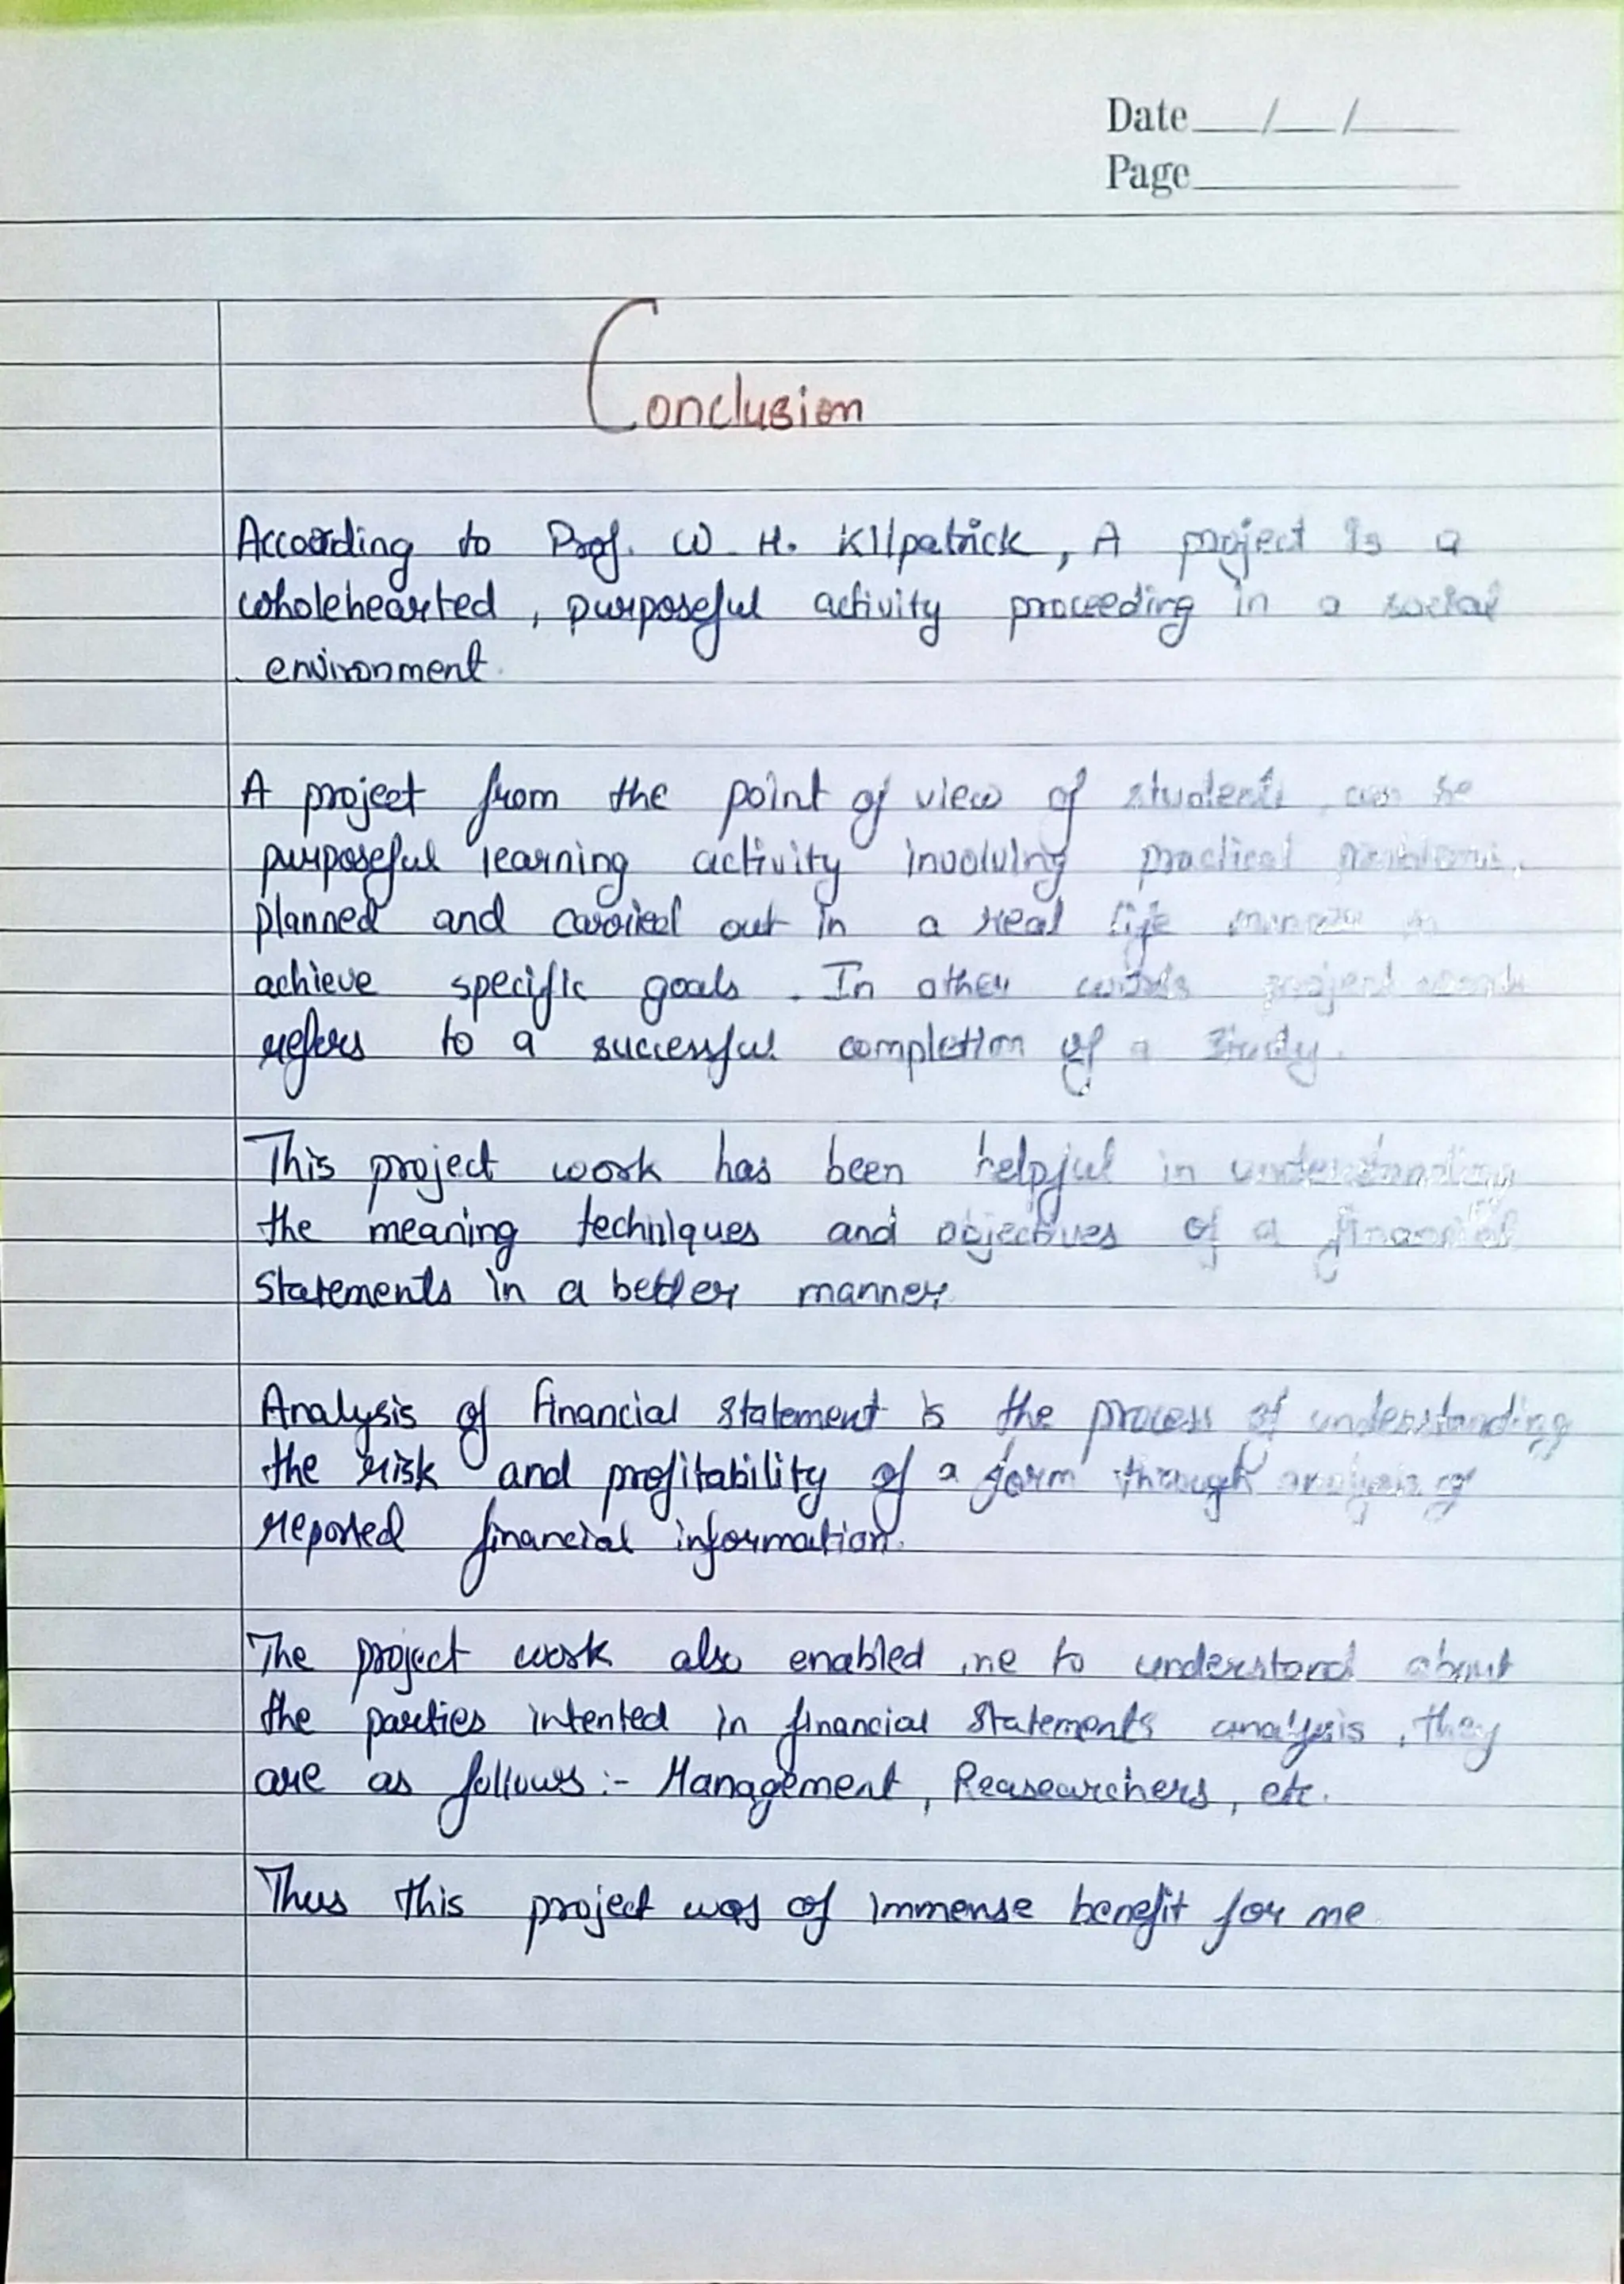 Date___/___/_____
Page__________
Conclusion
According to Prof. W. H. Kilpatrick, A project is a
wholehearted, purposeful activity proceeding in a social
environment.
A project from the point of view of students, can be
purposeful learning activity involving practical problems,
planned and carried out in a real life manner
achieve specific goals. In other words project
refers to a successful completion of a study.
This project work has been helpful in understanding
the meaning techniques and objectives of a financial
statements in a better manner.
Analysis of financial statement is the process of understanding
the risk and profitability of a form through analysis of
reported financial information.
The project work also enabled me to understand about
the parties intented in financial statements analysis, they
are as follows:- Management, Reasearchers, etc.
Thus this project was of immense benefit for me